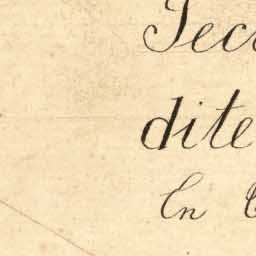 Sec
dite
En